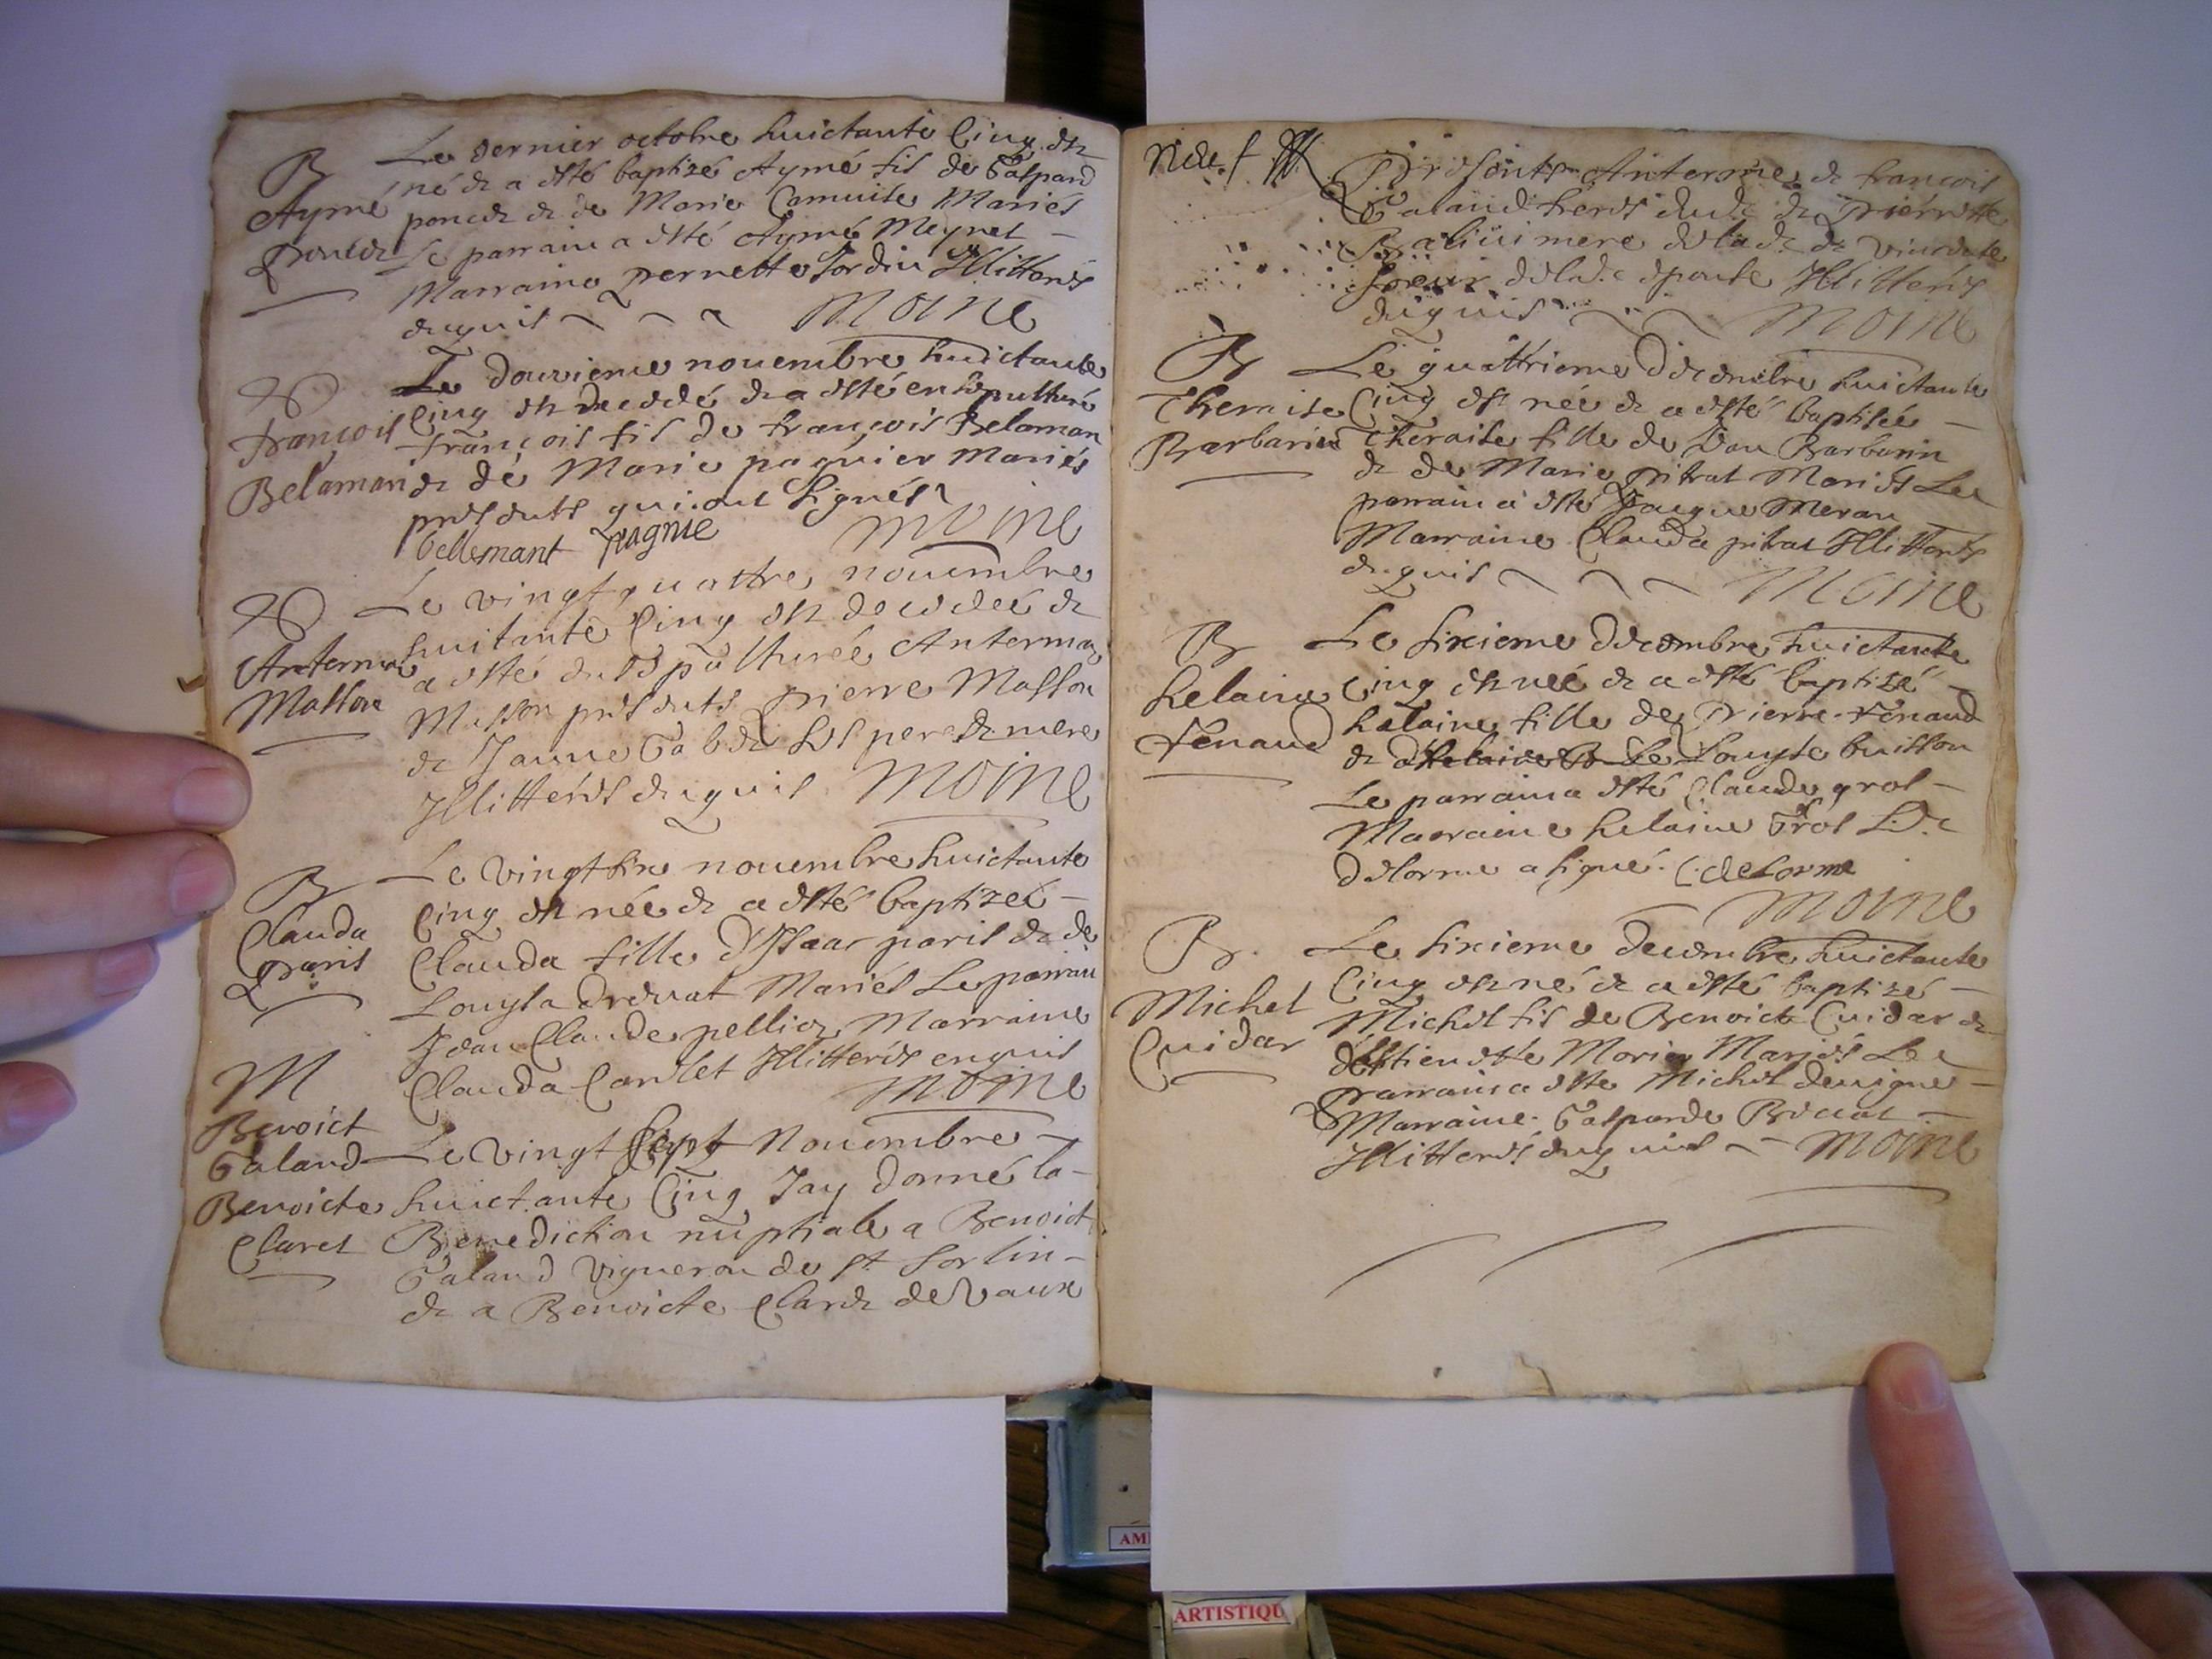 B
Aymé
poncet
Le dernier octobre huictante Cinq est
né & a esté baptizé Aymé fils de Gaspard
poncet & de Marie Camuise Mariés
Le parrain a esté Aymé Meynet
Marraine pernette Jordin Illiterés
enquis Moine
François
Belaman
Le douzieme nouembre huictante
Cinq est decedé & a esté ensepulturé
François fils de François Belaman
& de Marie paquier Mariés
presents qui ont signés
bellemant pagnie Moine
Anterma
Masson
Le vingt quattre nouembre
huitante Cinq est decedeé &
a esté ensepulturée Anterma
Masson presents pierre Masson
& Janne Gabet ses pere & mere
Illitterés enquis Moine
B
Clauda
paris
Le vingt six nouembre huictante
Cinq est née & a esté baptizeé
Clauda fille d'Isaac paris & de
Louysa Dreuat Mariés Le parrain
Jean Claude pellioz Marraine
Clauda Carrlet Illitterés enquis
Moine
M
Benoict
Galand
Benoicte
Claret
Le vingt sept Nouembre
huictante Cinq Jay donné la
Benediction nuptiale a Benoict
Galand vigneron de st Sorlin
& a Benoicte Claret de Vaux
presents Anterme & françois
Galand freres dud. & pierrette
Balliui mere de lad. &
soeur de lad. epouse Illitterés
enquis Moine
B
Theraise
Barbarin
Le quattrieme Decembre huictante
Cinq est née & a esté baptisée
Theraise fille de Barbarin
& de Marie pitrat Mariés Le
parrain a esté Jaque Meran
Marraine Clauda pitrat Illitterés
enquis Moine
B
helaine
fenaud
Le sixieme Decembre huictante
Cinq est née & a esté baptizé
helaine fille de pierre fenaud
& d'helaine Louyse buisson
Le parrain a esté Claude grol
Marraine helaine Grol
Delorme a signé. C. delorme
Moine
B.
Michel
Cuidar
Le sixieme decembre huictante
Cinq est né & a esté baptizé
Michel fils de Benoict Cuidar &
d'estiennette Morin Mariés Le
parrain a esté Michel deuigne
Marraine Gasparde
Illitterés enquis Moine
AM
ARTISTIQU